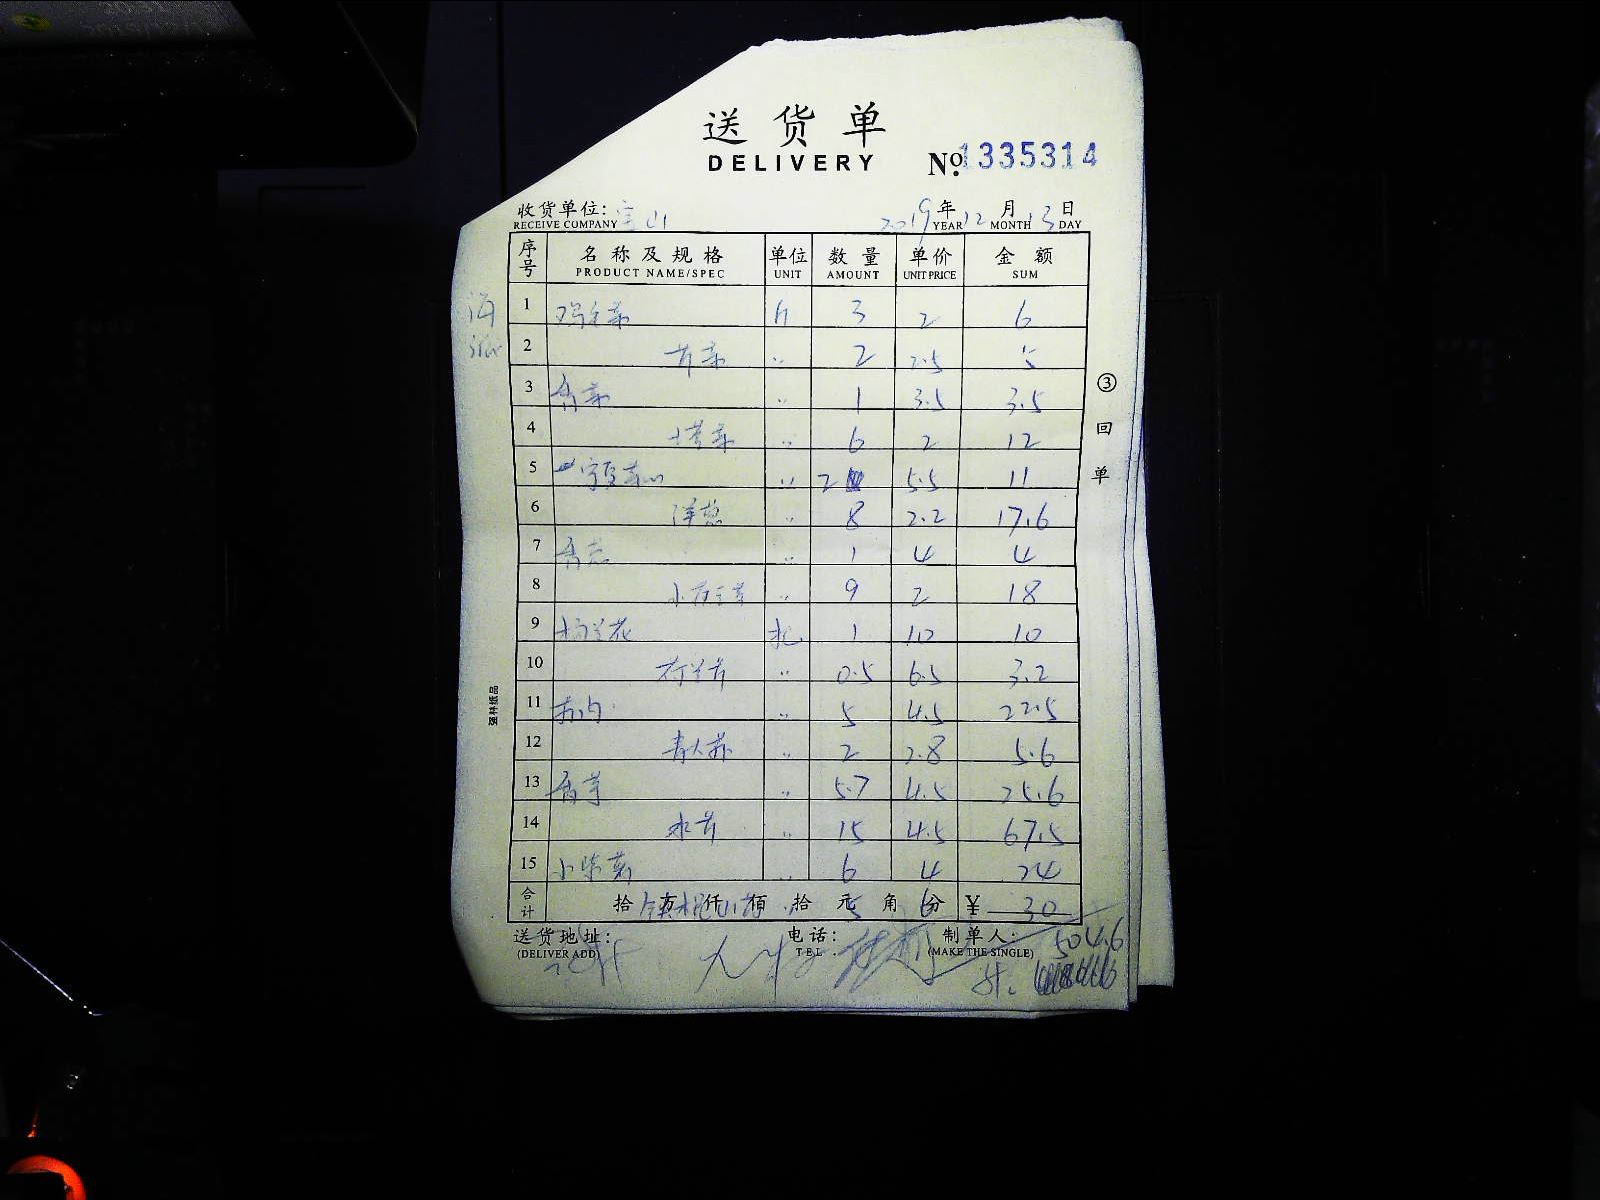 送货单
DELIVERY
No. 1335314
收货单位: 宝山 2019年12月13日
RECEIVE COMPANY YEAR MONTH DAY
序号 名称及规格 单位 数量 单价 金额
PRODUCT NAME/SPEC UNIT AMOUNT UNIT PRICE SUM
1 鸡毛菜 斤 3 2 6
2 芹菜 〃 2 2.5 5
3 香菜 〃 1 3.5 3.5
4 塔菜 〃 6 2 12
5 〃 2 5.5 11
6 洋葱 〃 8 2.2 17.6
7 香葱 〃 1 4 4
8 〃 9 2 18
9 把 1 10 10
10 荷兰芹 〃 0.5 6.5 3.2
11 〃 5 4.5 22.5
12 青大蒜 〃 2 2.8 5.6
13 香芋 〃 5.7 4.5 25.6
14 水芹 〃 15 4.5 67.5
15 〃 6 4 24
合计 拾 万 仟 佰 拾 元 5 角 6 分 ¥ 30
送货地址: 电话: 制单人: 504.6
(DELIVER ADD) TEL: (MAKE THE SINGLE)
③回单
强林纸品